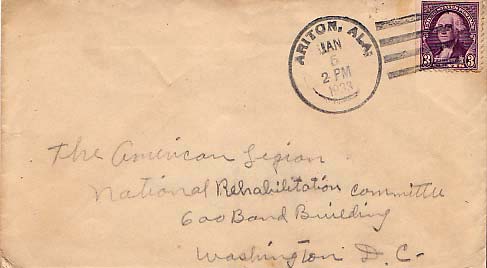 ARITON, ALA.
JAN
6
2 PM
1933
3 3
The American Legion
National Rehabilitation committee
600 Bond Building
Washington D.C-